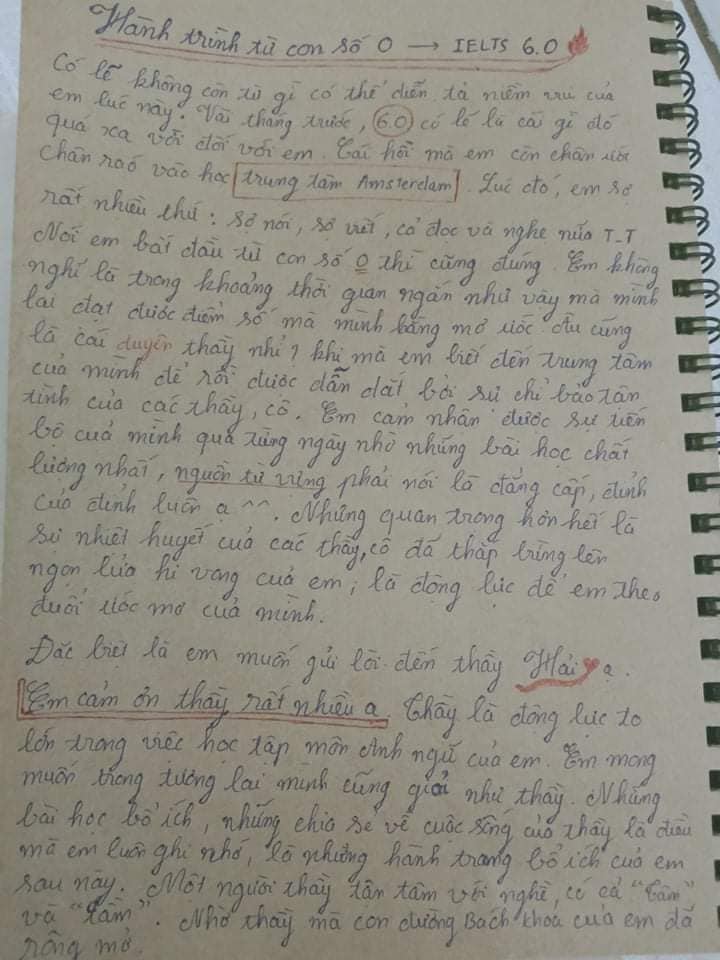 Hành trình từ con số 0 → IELTS 6.0
Có lẽ không còn từ gì có thể diễn tả niềm vui của
em lúc này. Vài tháng trước, 6.0 có lẽ là cái gì đó
quá xa vời đối với em. Cái hồi mà em còn chân ướt
chân ráo vào học trung tâm Amsterdam. Lúc đó, em sợ
rất nhiều thứ: sợ nói, sợ viết, cả đọc và nghe nữa T_T
Nói em bắt đầu từ con số 0 thì cũng đúng. Em không
nghĩ là trong khoảng thời gian ngắn như vậy mà mình
lại đạt được điểm số mà mình hằng mơ ước. Âu cũng
là cái duyên thầy nhỉ? khi mà em biết đến trung tâm
của mình để rồi được dẫn dắt bởi sự chỉ bảo tận
tình của các thầy, cô. Em cảm nhận được sự tiến
bộ của mình qua từng ngày nhờ những bài học chất
lượng nhất, nguồn từ vựng phải nói là đẳng cấp, đỉnh
của đỉnh luôn ạ ^^. Nhưng quan trọng hơn hết là
sự nhiệt huyết của các thầy, cô đã thắp bừng lên
ngọn lửa hi vọng của em, là động lực để em theo
đuổi ước mơ của mình.
Đặc biệt là em muốn gửi lời đến thầy Hải ạ.
Em cảm ơn thầy rất nhiều ạ. Thầy là động lực to
lớn trong việc học tập môn Anh ngữ của em. Em mong
muốn trong tương lai mình cũng giỏi như thầy. Những
bài học bổ ích, những chia sẻ về cuộc sống của thầy là điều
mà em luôn ghi nhớ, là những hành trang bổ ích của em
sau này. Một người thầy tận tâm với nghề, có cả "Tâm"
và "Tầm". Nhờ thầy mà con đường Bách khoa của em đã
rộng mở.